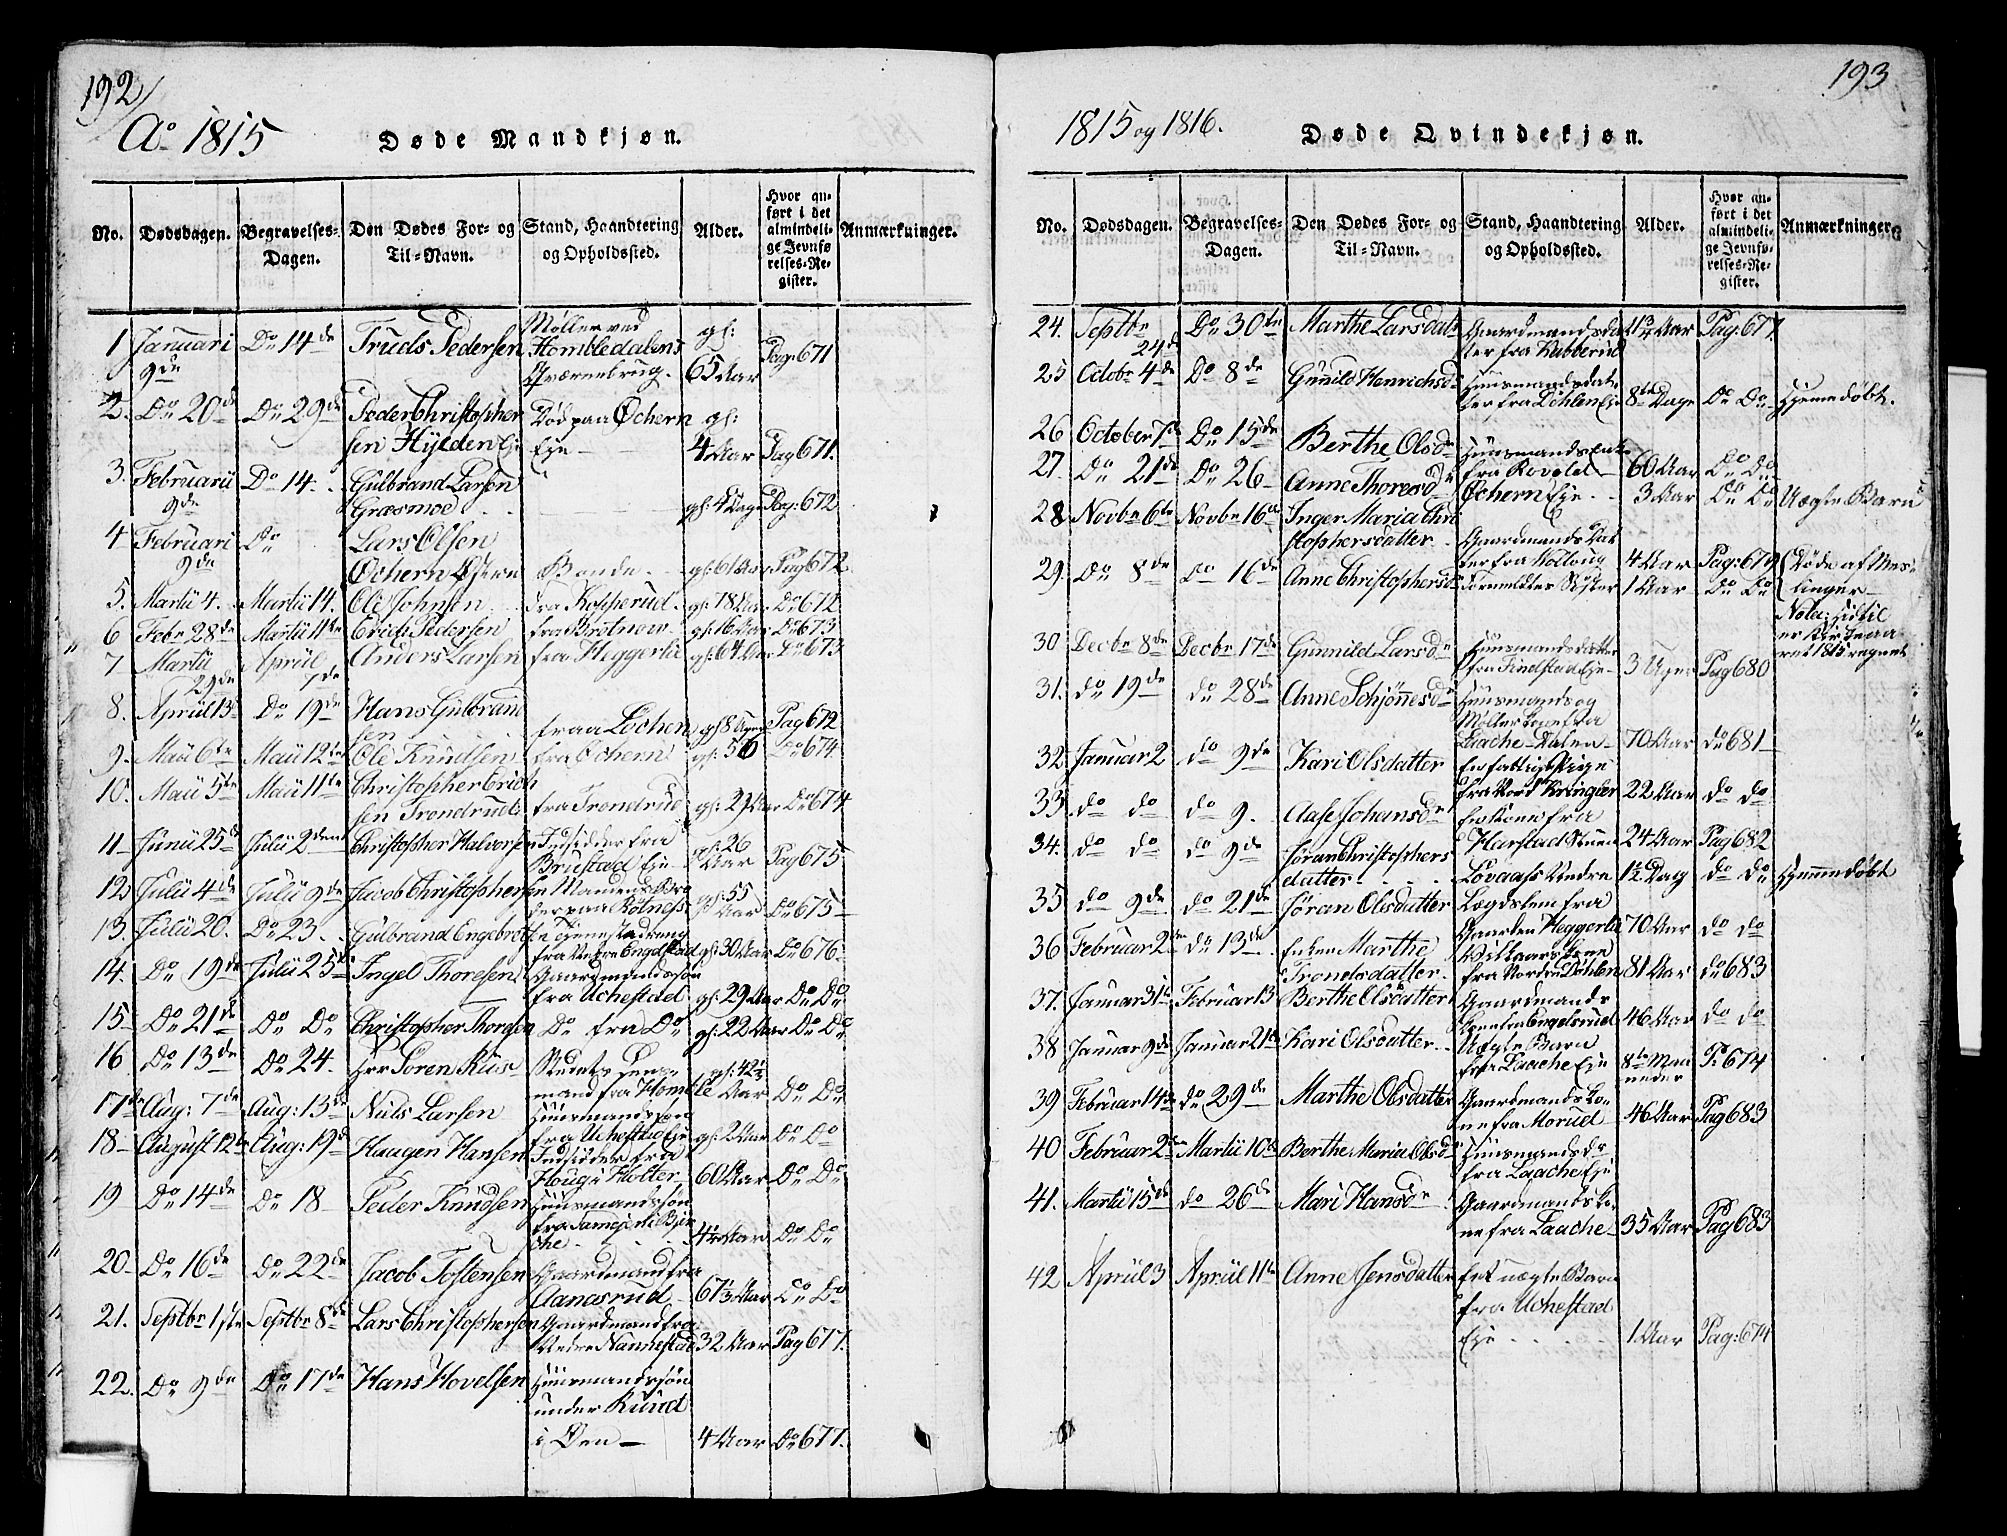 192
Ao 1815
Døde Mandkjøn.
No. Dødsdagen. Begravelses-Dagen. Den Dødes For- og Til-Navn. Stand, Haandtering og Opholdssted. Alder. Hvor anført i det almindelige Jevnførelses-Register. Anmærkninger.
1 Januari 9de Do 14de Truds Pedersen Møller ved Hombledalens Qværnebrug. gl: 65 Aar Pag: 671
2. Do 20de Do 29de Peder Christophersen Hylden Eje Død paa Ochern Eje gl: 4 Aar Pag 671.
3. Februarii 9de Do 14. Gulbrand Larsen Græsmoe gl: 4 Dage Pag: 672
4 Februari 9de Do Lars Olsen Ochern Bonde gl: 61 Aar Pag 672
5. Martii 4. Martii 14. Ole Johnsen fra Kopperud. gl: 78 Aar Do 672
6 Febr 28de Martii 11te Erich Pedersen fra Brotnow gl: 16 Aar Do 673
7 Martii 29de Aprül 7de Anders Larsen fra Heggerlie gl: 64 Aar Do 673
8. Aprül 13 Do 19de Hans Gulbrandsen fraa Lochen gl 8 Pag 672
9. Maii 6te Maii 12te Ole Knudsen fra Ochern gl: 56 Do 674
10. Maii 5te Maii 11te Christopher Erichsen Trondrud fra Trondrud gl: 29 Aar Do 674
11 Junii 25de Julii 2den Christopher Halvorsen Indsidder fra Brustad Eje gl: 26 Aar Pag 675
12. Julii 4de Julii 9de Jacob Christophersen Mandens Broder paa Rotness gl: 55 Aar Do 675
13. Julii 20. Do 23. Gulbrand Engebretsen Tjenestedreng fra Nedre Engelstad gl: 30 Aar Do 676.
14. Do 19de Julii 25de Ingel Thoresen Gaardmandssøn fra Uchestad gl: 29 Aar Do Do
15 Do 21de Do Do Christopher Thoresen Do fra Do gl: 22 Aar Do Do
16. Do 13de Do 24. Hrr Søren Stedets mand fra Homble gl: 42½ Aar Do Do
17de Aug: 7de Aug: 13de Niels Larsen Huusmandssøn fra Uchestad Eje gl: 2 Aar Do Do
18 August 12te Aug: 19de Haagen Hansen Indsidder fra Houg i Holter 60 Aar Do Do
19 Do 14de Do 18 Peder Knudsen Huusmandssøn fra 4½ Aar Do Do
20 Do 16de Do 22de Jacob Tostensen Gaardmand fra Aanasrud 67⅓ Aar Do Do
21. Septbr 1ste Septbr 8de Lars Christophersen Gaardmand fra Nedre Nannestad 32 Aar Pag 677.
22. Do 9de Do 17de Hans Hovelsen Huusmandssøn under Ruud i Oen 4 Aar Do 677.
193
1815 og 1816.
Døde Qvindekjøn.
No. Dødsdagen. Begravelses-Dagen. Den Dødes For- og Til-Navn. Stand, Haandtering og Opholdssted. Alder. Hvor anført i det almindelige Jevnførelses-Register. Anmærkninger.
24. Septbr 24de Do 30te Marthe Larsdatr Gaardmandsdatter fra Kubberud 1¾ Aar Pag: 677.
25 Octobr 4de Do 8de Gunild Henrichsdr Huusmandsdatter fra Døhlen Eje 8te Dage Do Do Hjemmedøbt.
26 October 7de Do 15de Berthe Olsdr Huusmandsenke fra 60 Aar Do Do
27. Do 21de Do 26 Anne Thoresdr Ochern Eje 3 Aar Do Do Uægte Barn
28 Novbr 6te Novbr 16de Inger Maria Christophersdatter Gaardmands Datter fra Holloug 4 Aar Pag: 679 (Døde af Meslinger
29. Do 8de Do 16de Anne Christophersdr Formeldtes Søster 1 Aar Do Do
Nota: hidtil er Kirkeaaret 1815 regnet
30 Decbr 8de Decbr 17de Gunnild Larsdr Huusmandsdatter fra Findstad Eje 3 Uger Pag 680
31. do 19de do 28de Anne Schjønnesdr Huusmands og Møllerkone fra Laache-Dalen 70 Aar do 681
32. Januar 2 do 9de Kari Olsdatter En fattig Pige fra Nord Kringler 22 Aar do do
33 do do do 9. Aase Johansdr En Kone fra Harstad Stuen 24 Aar Pag 682
34. do do do 9de Jøran Christophersdatter Lovaass Nedre 1½ Dag do do Hjemmedøbt
35 do 9de do 21de Jøran Olsdatter Lægdslem fra Gaarden Heggerlie 70 Aar do do
36 Februar 2den do 13de Enken Marthe Trondsdatter fra Nordre Døhlen 81 Aar do 683
37. Januar 31te Februar 13 Berthe Olsdatter Gaardmands Kone fra Engelsrud 46 Aar do do
38 Januar 9de Januar 21te Kari Olsdatter Uægte Barn fra Laache Eje 8te Maaneder P: 674
39 Februar 14de do 29de Marthe Olsdatter Gaardmandskone fra Morud 46 Aar Pag 683
40 Februar 2den Martii 10de Berthe Maria Olsdr Huusmandsdr fra Laache Eje
41. Martii 15de do 26de Mari Hansdr Gaardmandskone fra Laache 35 Aar Pag 683
42 Aprül 3 Aprül 11te Anne Jensdatter Eet uægte Barn fra Uchestad Eje 1. Aar Pag: 674